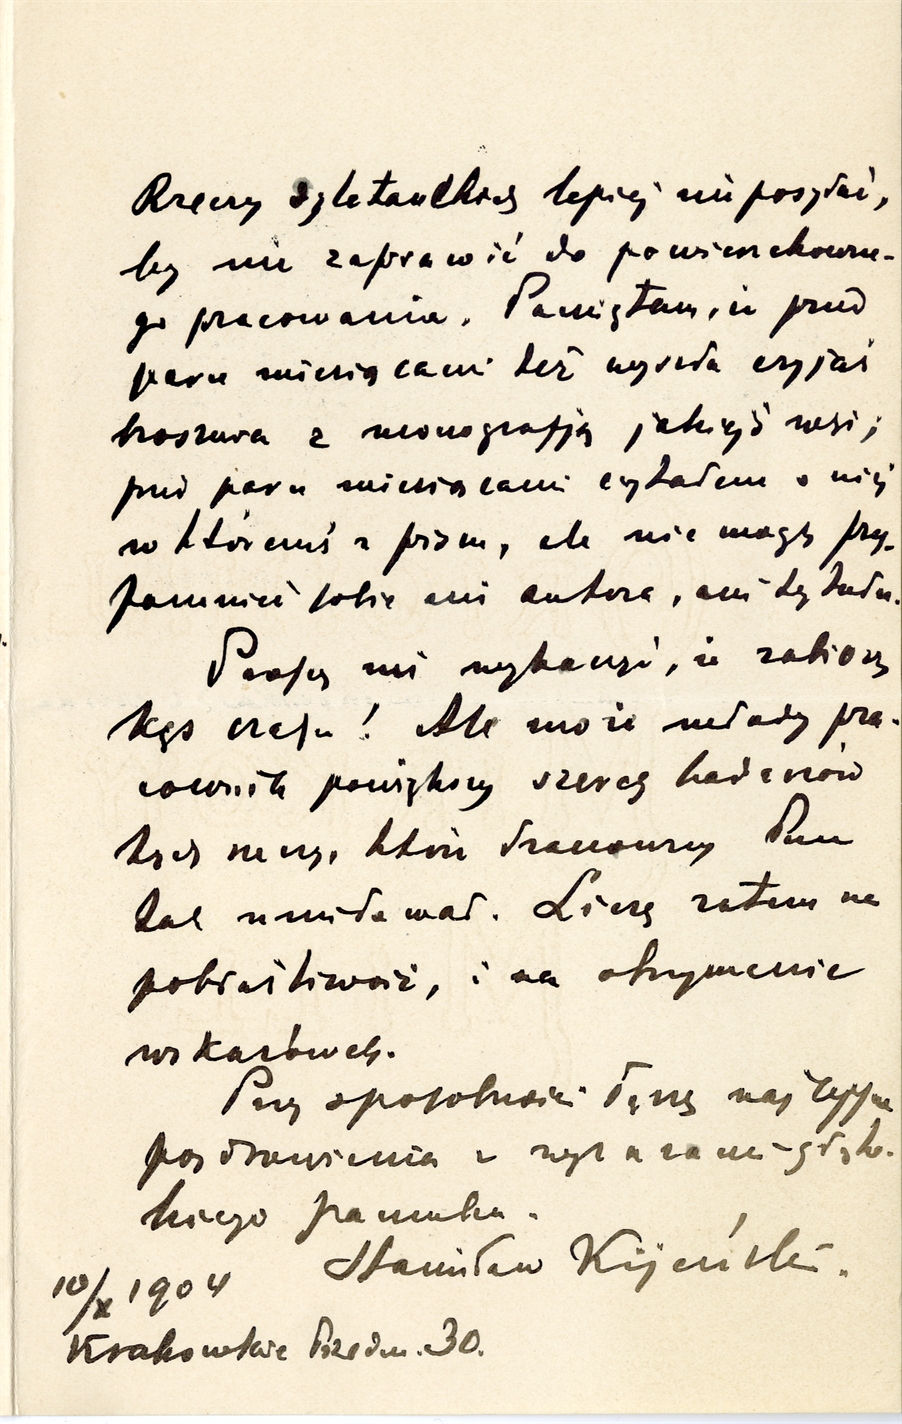 Rzeczy dyletanckich lepiej nie posyłać,
by nie zaprawić do powierzchowne-
go pracowania. Pamiętam, iż przed
paru miesiącami też wyszła czyjaś
broszura z monografją jakiejś wsi;
przed paru miesiącami czytałem o niej
w któremś z pism, ale nie mogę przy-
pomnieć sobie ani autora, ani tytułu.
Proszę mi wybaczyć, iż zabiorę
kęs czasu! Ale może młody pra-
cownik powiększy szereg badaczów
tych rzeczy, które Szanowny Pan
tak umiłował. Liczę zatem na
pobłażliwość, i na otrzymanie
wskazówek.
Przy sposobności łączę najlepsze
pozdrowienia z wyrazami głębo-
kiego szacunku.
Stanisław Kijeński.
10/X 1904
Krakowskie Przedm. 30.